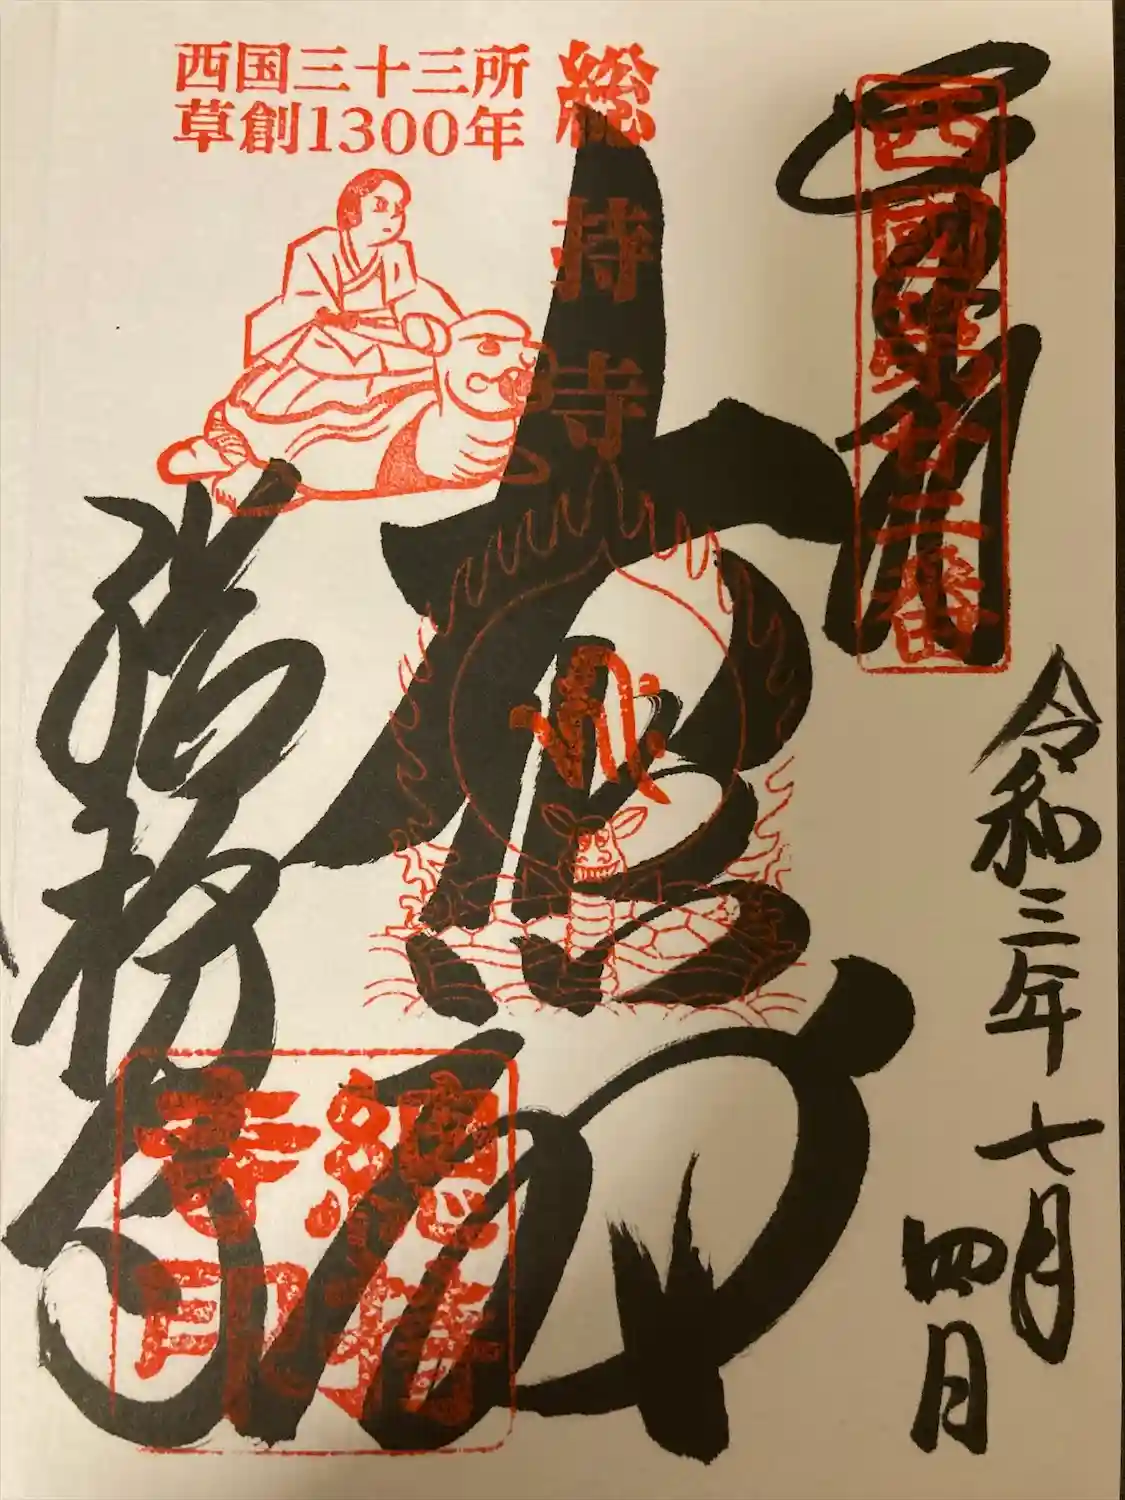 西国三十三所
草創1300年
総持寺
西國第廿二番
奉拝
令和三年七月四日
大悲殿
総持寺
總持寺印